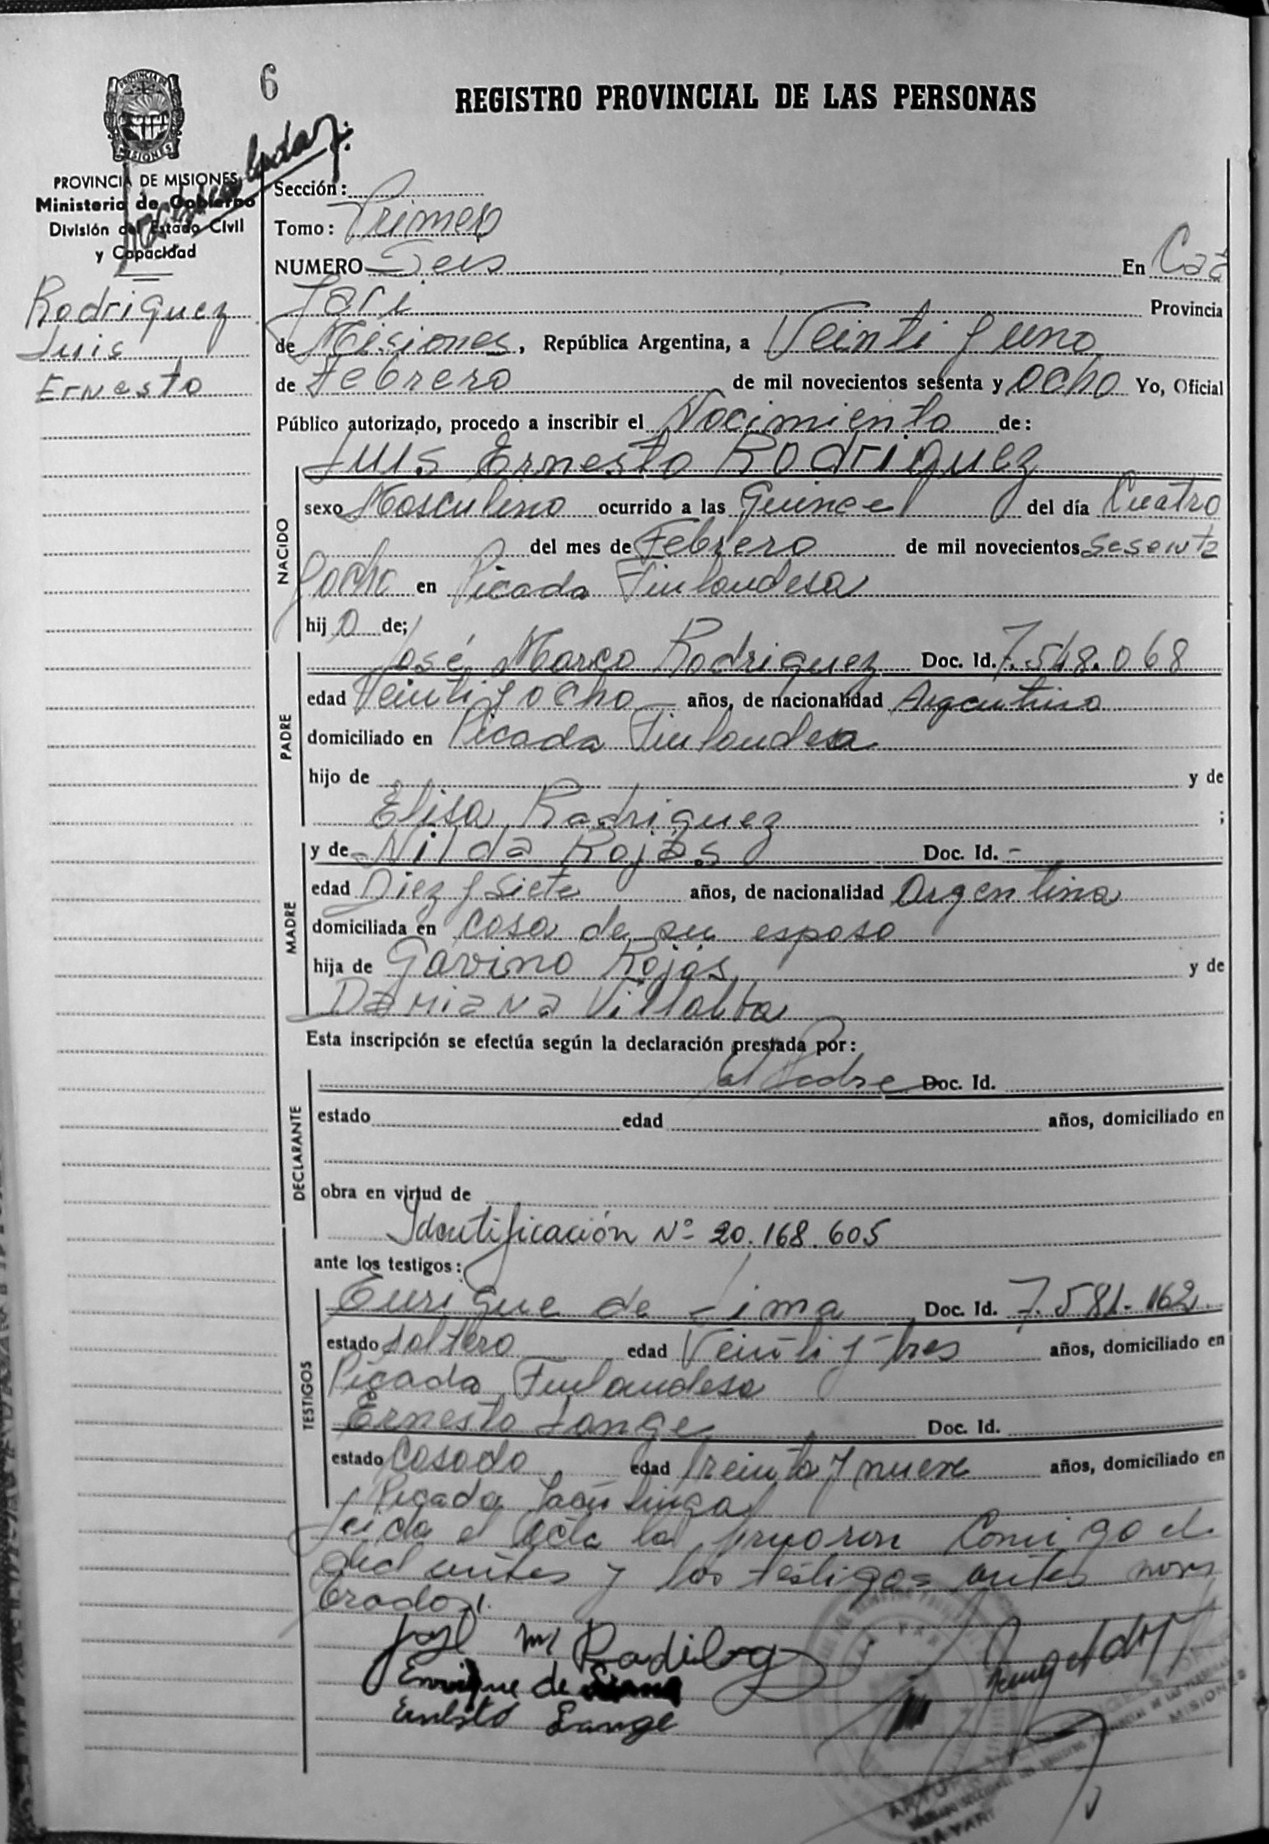 6
REGISTRO PROVINCIAL DE LAS PERSONAS
PROVINCIA DE MISIONES
Ministerio de Gobierno
División del Estado Civil
y Capacidad
Rodriguez
Luis
Ernesto
Sección:
Tomo: Primero
NUMERO Seis En Caá
Yarí Provincia
de Misiones, República Argentina, a Veinti y uno
de Febrero de mil novecientos sesenta y ocho Yo, Oficial
Público autorizado, procedo a inscribir el Nacimiento de:
Luis Ernesto Rodriguez
NACIDO
sexo Masculino ocurrido a las Quince del día Cuatro
del mes de Febrero de mil novecientos sesenta
y ocho en Picada Finlandesa
hijo de;
PADRE
José Marco Rodriguez Doc. Id. 7.548.068
edad Veinti y ocho años, de nacionalidad Argentino
domiciliado en Picada Finlandesa
hijo de y de
Elisa Rodriguez ;
MADRE
y de Nilda Rojas Doc. Id. -
edad Diez y siete años, de nacionalidad Argentina
domiciliada en casa de su esposo
hija de Gavino Rojas y de
Damiana Villalba
Esta inscripción se efectúa según la declaración prestada por:
DECLARANTE
el Padre Doc. Id.
estado edad años, domiciliado en
obra en virtud de
Identificación Nº 20.168.605
ante los testigos:
TESTIGOS
Enrique de Lima Doc. Id. 7.581.162
estado soltero edad Veinti y tres años, domiciliado en
Picada Finlandesa
Ernesto Lange Doc. Id.
estado Casado edad treinta y nueve años, domiciliado en
Picada
Leida el Acta la firmaron Conmigo el
y los testigos antes nom
brados.
José M. Rodriguez
Enrique de Lima
Ernesto Lange
MISIONES